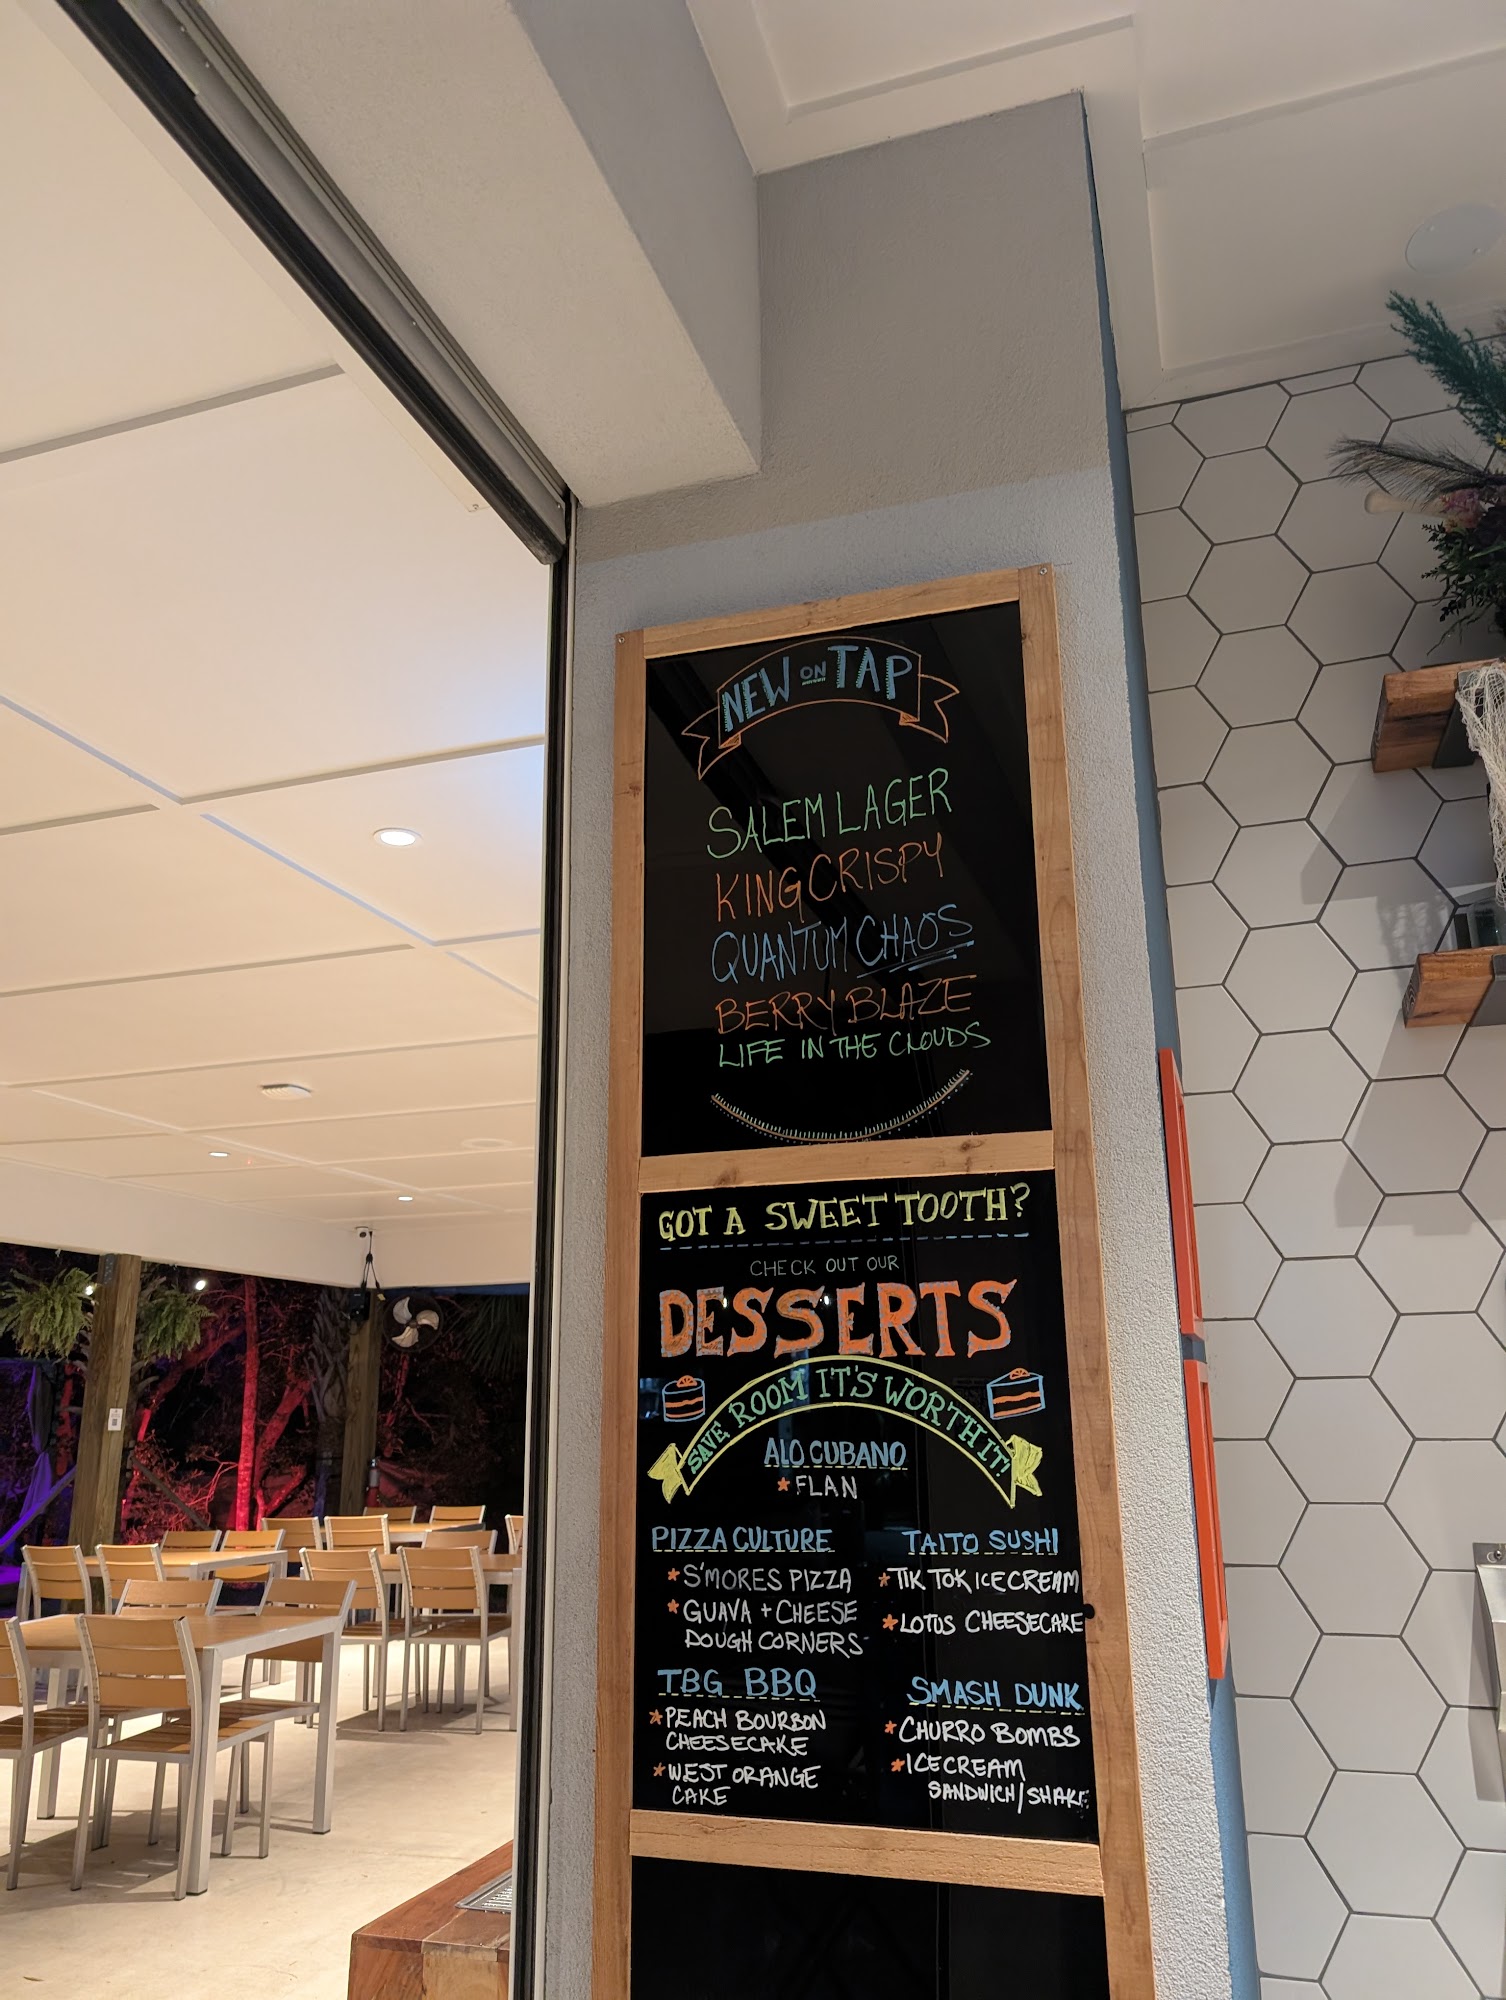 NEW ON TAP
SALEM LAGER
KING CRISPY
QUANTUM CHAOS
BERRY BLAZE
LIFE IN THE CLOUDS
GOT A SWEET TOOTH?
CHECK OUT OUR
DESSERTS
SAVE ROOM IT'S WORTH IT!
ALO CUBANO
* FLAN
PIZZA CULTURE
* S'MORES PIZZA
* GUAVA + CHEESE
DOUGH CORNERS
TAITO SUSHI
* TIK TOK ICE CREAM
* LOTUS CHEESECAKE
TBG BBQ
* PEACH BOURBON
CHEESECAKE
* WEST ORANGE
CAKE
SMASH DUNK
* CHURRO BOMBS
* ICE CREAM
SANDWICH/SHAKE